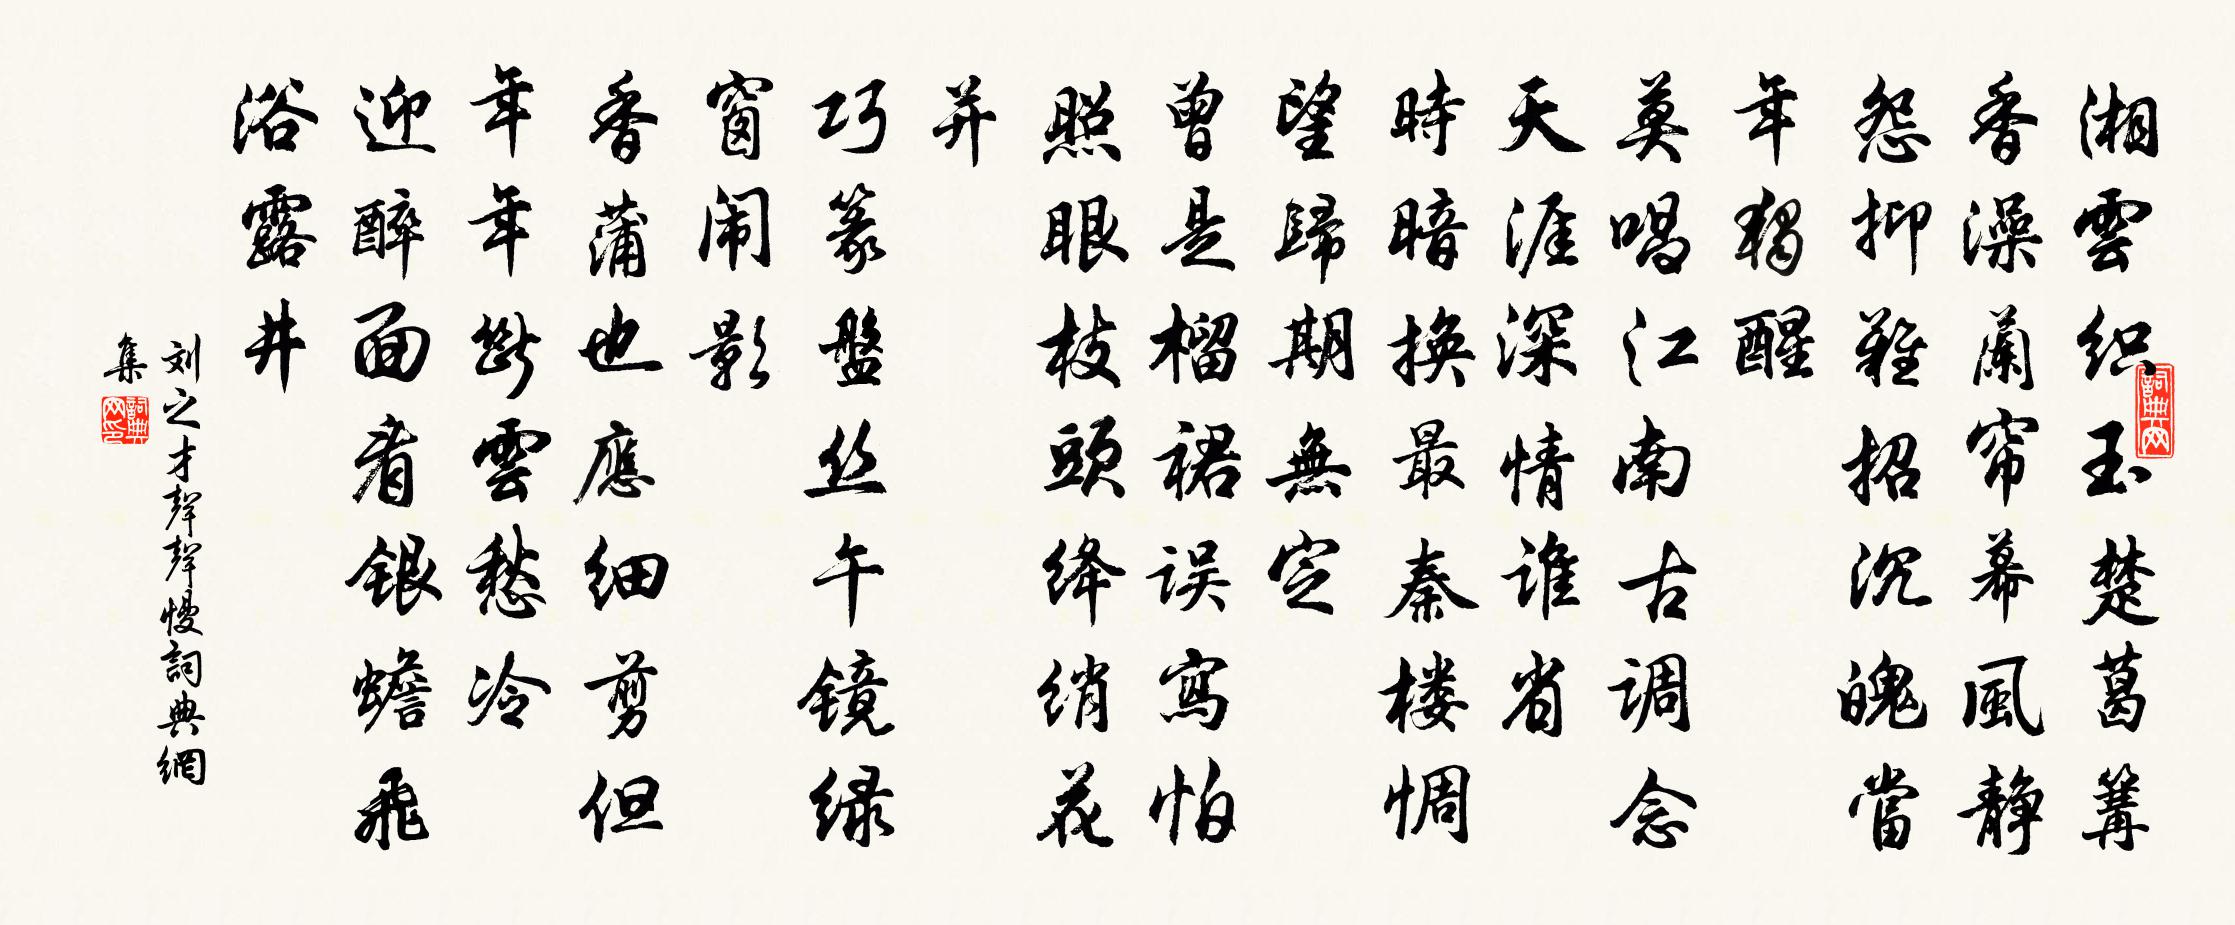 湘雲织玉楚葛篝
香澡蘭帘幕風静
怨抑難招沉魄當
年獨醒
莫唱江南古调念
天涯深情谁省
時暗换最秦楼惆
望歸期無定
曾是榴裙误寫怕
照眼枝頭绛绡花
并
巧篆盤丝午镜绿
窗闹影
香蒲也應细剪但
年年斷雲愁冷
迎醉面看银蟾飛
浴露井
刘之才聲聲慢詞典網
集
詞典网
詞典网印